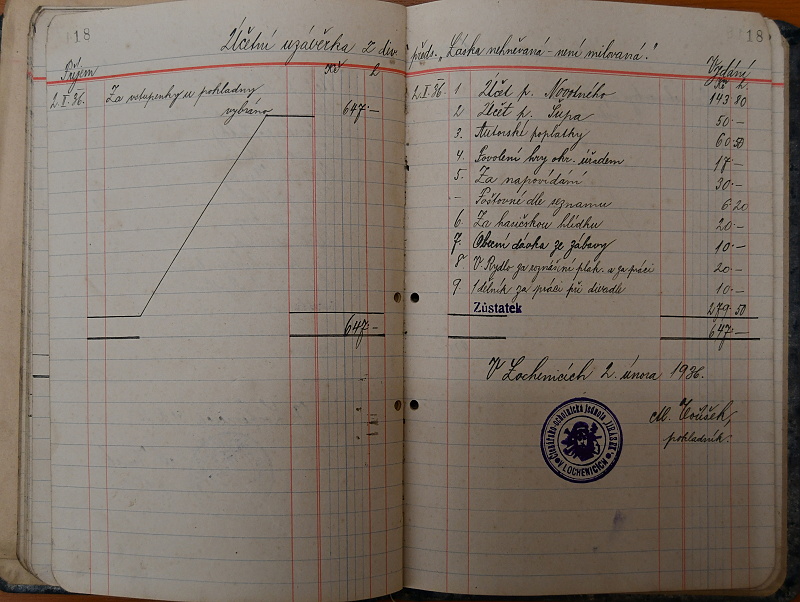 18
Účetní uzávěrka z div. předs. „Láska nehněvaná - není milovaná."
18
Příjem
Kč h
2.I.36. Za vstupenky u pokladny
vybráno 647·-
647·-
Vydání
Kč h
2.I.36. 1 Účet p. Novotného 143 80
2 Účet p. Šupa 50·-
3. Autorské poplatky 60·50
4. Povolení hry okr. úřadem 17·-
5. Za napovídání 30·-
- Poštovné dle seznamu 6·20
6. Za hasičskou hlídku 20·-
7. Obecní dávka ze zábavy 10·-
8. V. Rydlo za roznášení plak. a za práci 20·-
9. 1 dělník za práci při divadle 10·-
Zůstatek 279·50
647·-
V Lochenicích 2. února 1936.
M.
pokladník.
Čtenářsko-ochotnická jednota "JIRÁSEK" V LOCHENICÍCH